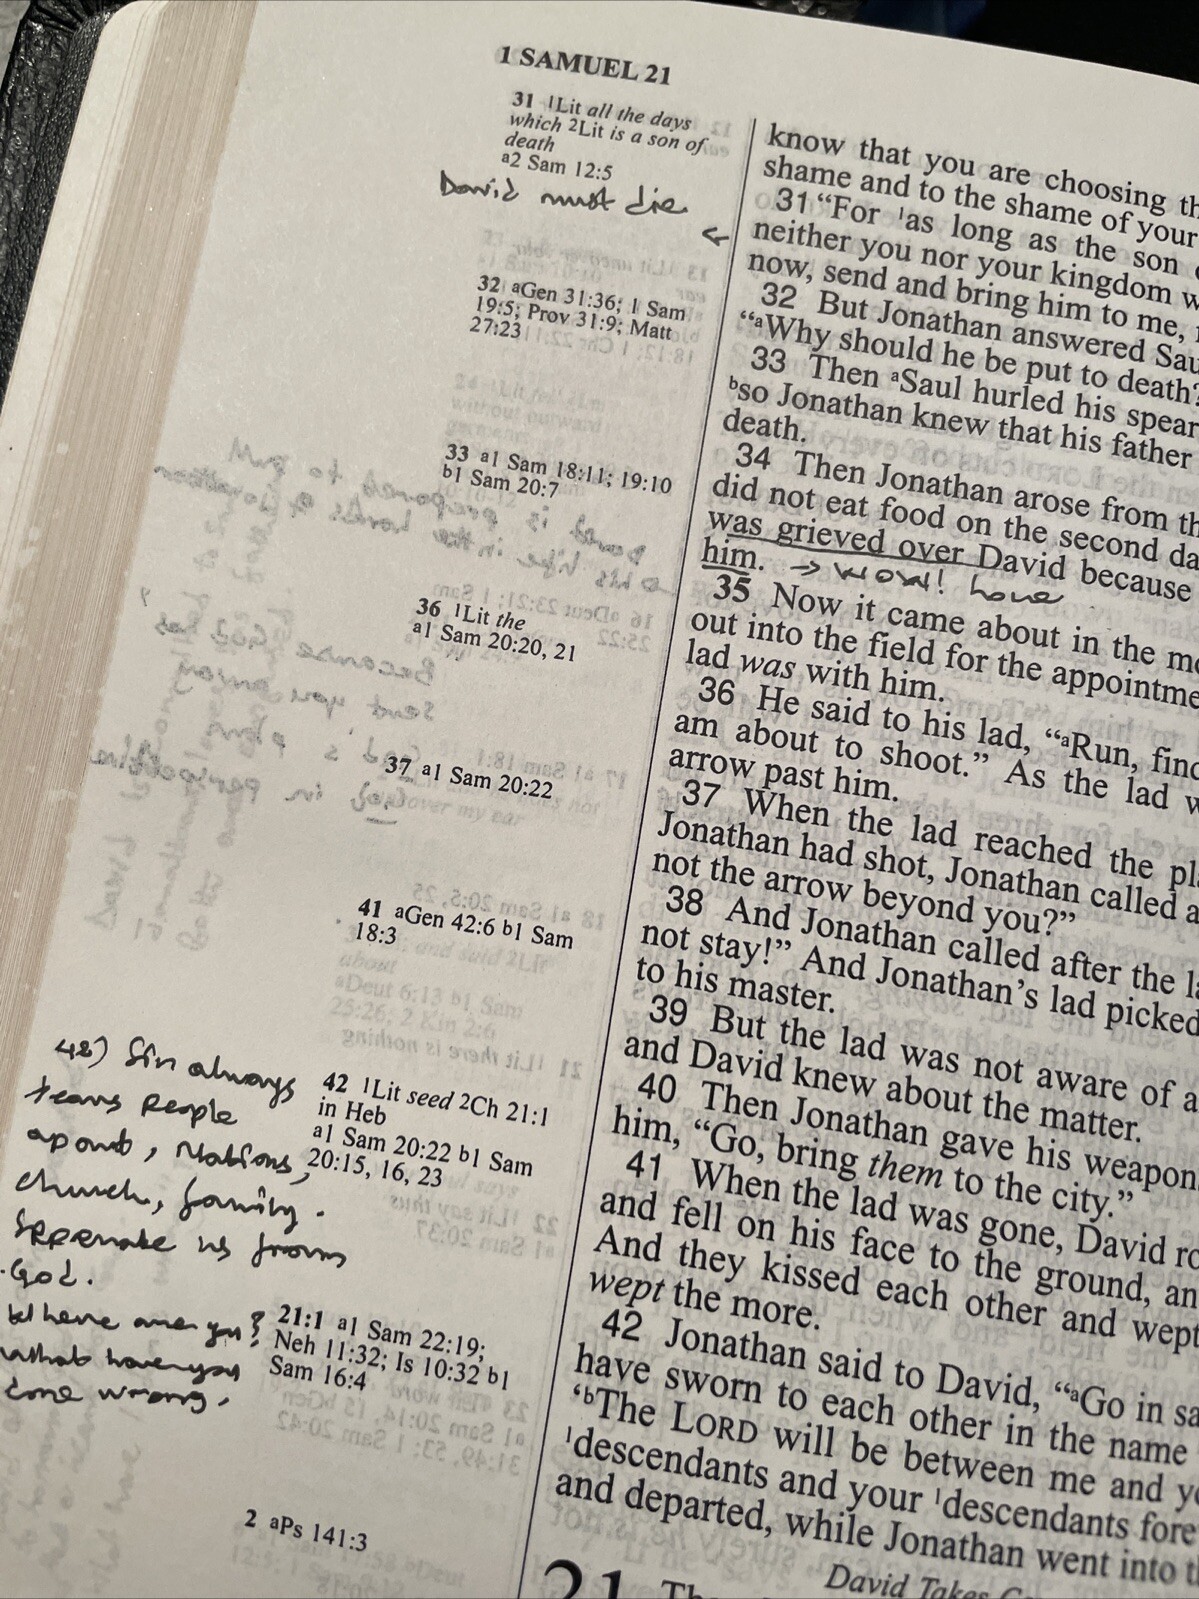 1 SAMUEL 21
31 1Lit all the days
which 2Lit is a son of
death
a2 Sam 12:5
David must die
←
32 aGen 31:36; 1 Sam
19:5; Prov 31:9; Matt
27:23
33 a1 Sam 18:11; 19:10
b1 Sam 20:7
36 1Lit the
a1 Sam 20:20, 21
37 a1 Sam 20:22
41 aGen 42:6 b1 Sam
18:3
42) Sin always
tears people
apart, Nations,
church, family.
Seperate us from
God.
Where are you?
what have you
done wrong.
42 1Lit seed 2Ch 21:1
in Heb
a1 Sam 20:22 b1 Sam
20:15, 16, 23
21:1 a1 Sam 22:19;
Neh 11:32; Is 10:32 b1
Sam 16:4
2 aPs 141:3
know that you are choosing
shame and to the shame of your
31 “For 1as long as the son
neither you nor your kingdom
now, send and bring him to me,
32 But Jonathan answered
“aWhy should he be put to death?
33 Then aSaul hurled his spear
bso Jonathan knew that his father
death.
34 Then Jonathan arose from
did not eat food on the second
was grieved over David because
him. → WOW! love
35 Now it came about in the
out into the field for the
lad was with him.
36 He said to his lad, “aRun,
am about to shoot.” As the lad
arrow past him.
37 When the lad reached the
Jonathan had shot, Jonathan called
not the arrow beyond you?”
38 And Jonathan called after the
not stay!” And Jonathan’s lad picked
to his master.
39 But the lad was not aware of
and David knew about the matter.
40 Then Jonathan gave his
him, “Go, bring them to the city.”
41 When the lad was gone, David
and fell on his face to the ground,
And they kissed each other and wept
wept the more.
42 Jonathan said to David, “aGo in
have sworn to each other in the name
‘bThe LORD will be between me and
1descendants and your 1descendants
and departed, while Jonathan went into
David Takes
21